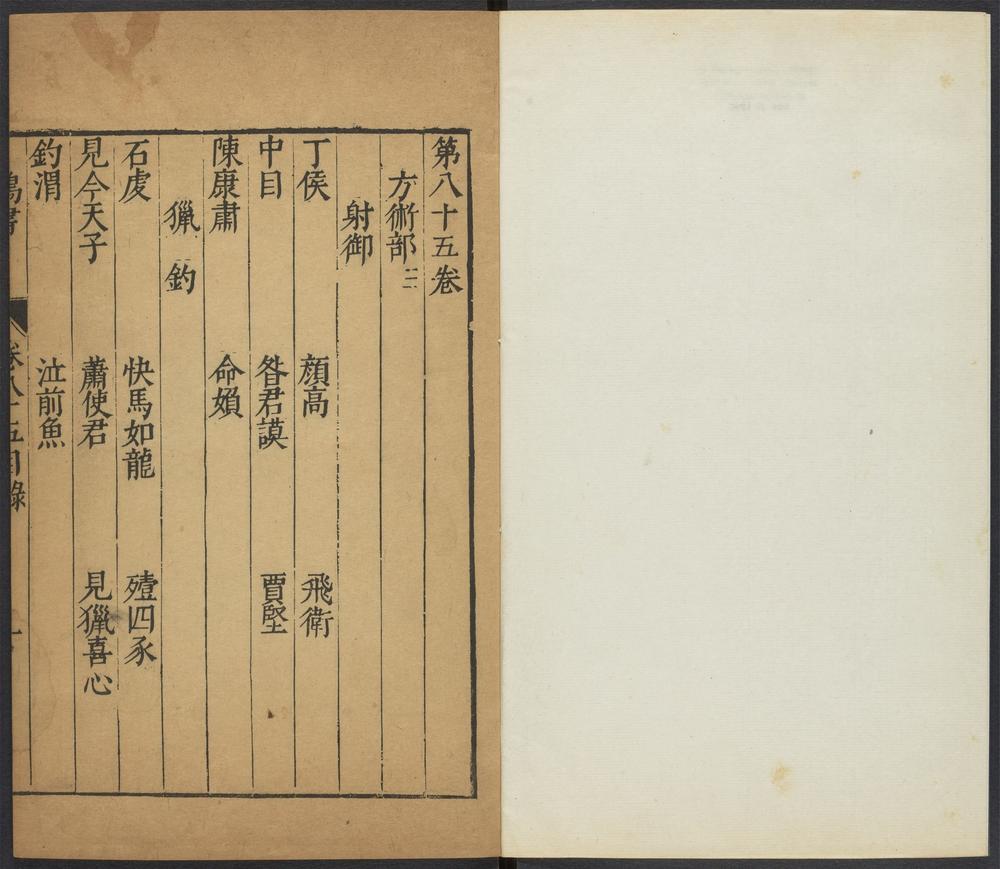 第八十五卷
方術部二
射御
丁侯 顔高 飛衛
中目 昝君謨 賈堅
陳康肅 命嬪
獵 釣
石虔 快馬如龍 殪四豕
見今天子 蕭使君 見獵喜心
釣渭 泣前魚
卷八十五目錄